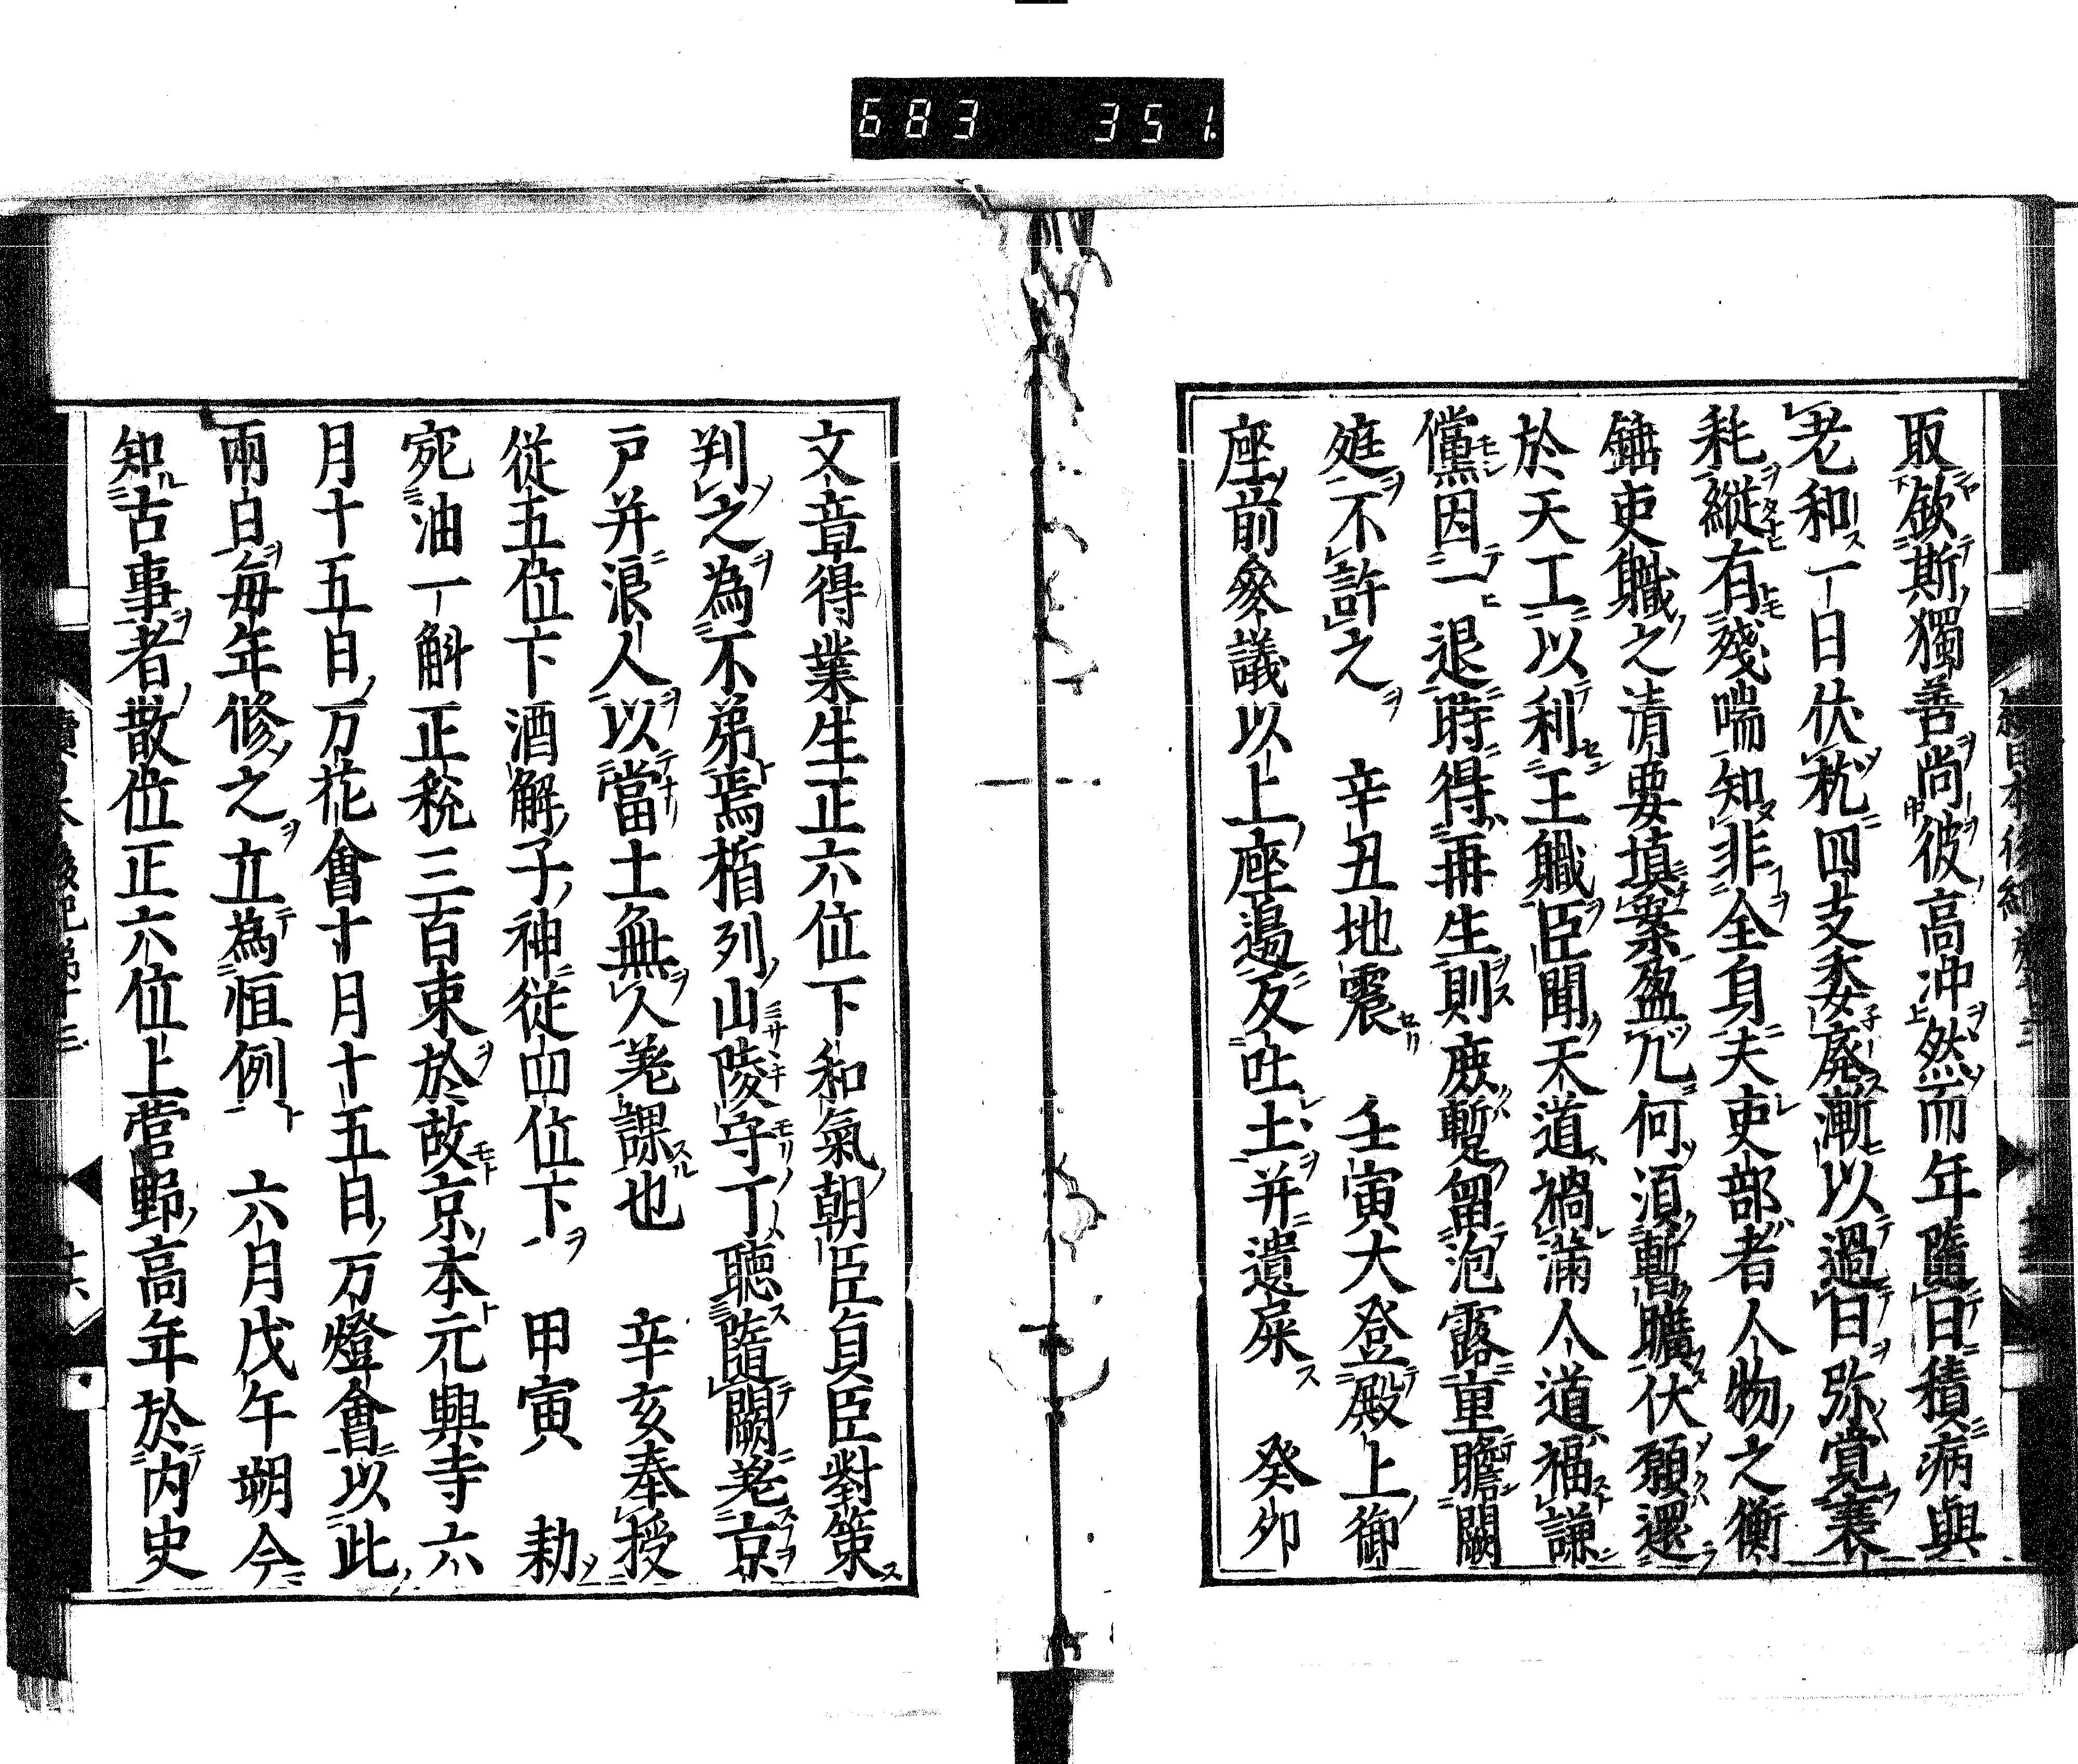 683 351
取欽斯獨善尚彼高沖然而年隨日積病與
老和一日伏枕四支委廢漸以過日弥覚衰
耗縦有殘喘知非全身夫吏部者人物之衡
鏞吏職之清要填案盈几何須暫曠伏願還
於天工以利王職臣聞天道禍滿人道福謙
儻因一退時得再生則庻蹔留泡露重瞻闕
庭不許之　辛丑地震　壬寅大登殿上御
座前参議以上座邊反吐土并遺屎　癸夘
文章得業生正六位下和氣朝臣貞臣對策
判之為不弟焉楯列山陵守丁聴隨闕差京
戸并浪人以當土無人差課也　辛亥奉授
従五位下酒解子神従四位下　甲寅　勅
宛油一斛正税三百束於故京本元興寺六
月十五日万花會十月十五日万燈會以此
兩白毎年修之立為恒例　六月戊午朔今
知古事者散位正六位上菅野高年於内史